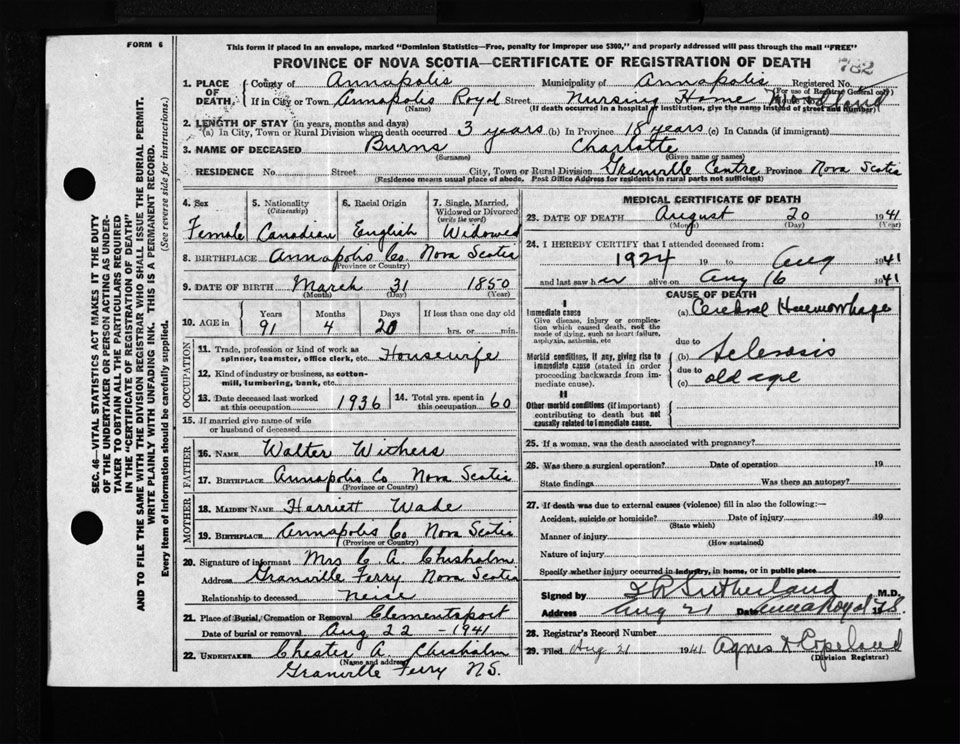 FORM 6
This form if placed in an envelope, marked "Dominion Statistics—Free, penalty for improper use $300," and properly addressed will pass through the mail "FREE"
PROVINCE OF NOVA SCOTIA—CERTIFICATE OF REGISTRATION OF DEATH
782
1. PLACE OF DEATH. County of Annapolis Municipality of Annapolis Registered No.
(For use of Registrar General only)
If in City or Town Annapolis Royal Street Nursing Home
(Name) (If death occurred in a hospital or institution, give the name instead of street and number)
2. LENGTH OF STAY (in years, months and days)
(a) In City, Town or Rural Division where death occurred 3 years (b) In Province 18 years (c) In Canada (if immigrant)
3. NAME OF DECEASED Burns Charlotte
(Surname) (Given name or names)
RESIDENCE No. Street City, Town or Rural Division Granville Centre Province Nova Scotia
(Residence means usual place of abode. Post Office Address for residents in rural parts not sufficient)
4. Sex 5. Nationality (Citizenship) 6. Racial Origin 7. Single, Married, Widowed or Divorced (write the word)
Female Canadian English Widowed
8. BIRTHPLACE Annapolis Co. Nova Scotia
(Province or Country)
9. DATE OF BIRTH March 31 1850
(Month) (Day) (Year)
10. AGE in Years Months Days If less than one day old
91 4 20 hrs. or min.
OCCUPATION
11. Trade, profession or kind of work as spinner, teamster, office clerk, etc. Housewife
12. Kind of industry or business, as cotton-mill, lumbering, bank, etc.
13. Date deceased last worked at this occupation 1936 14. Total yrs. spent in this occupation 60
15. If married give name of wife or husband of deceased
FATHER
16. NAME Walter Withers
17. BIRTHPLACE Annapolis Co Nova Scotia
(Province or Country)
MOTHER
18. MAIDEN NAME Harriett Wade
19. BIRTHPLACE Annapolis Co Nova Scotia
(Province or Country)
20. Signature of informant Mrs C A. Chisholm
Address Granville Ferry Nova Scotia
Relationship to deceased Neice
21. Place of Burial, Cremation or Removal Clementsport
Date of burial or removal Aug 22 - 1941
22. UNDERTAKER Chester A. Chisholm
(Name and address)
Granville Ferry N.S.
MEDICAL CERTIFICATE OF DEATH
23. DATE OF DEATH August 20 1941
(Month) (Day) (Year)
24. I HEREBY CERTIFY that I attended deceased from:
1924 19 to Aug 1941
and last saw her alive on Aug 16 1941
CAUSE OF DEATH
I
Immediate cause (a) Cerebral Haemorrhage
Give disease, injury or complication which caused death, not the mode of dying, such as heart failure, asphyxia, asthenia, etc
due to
Morbid conditions, if any, giving rise to immediate cause (stated in order proceeding backwards from immediate cause). (b) Sclerosis
due to
(c) old age
II
Other morbid conditions (if important) contributing to death but not causally related to immediate cause.
25. If a woman, was the death associated with pregnancy?
26. Was there a surgical operation? Date of operation 19
State findings Was there an autopsy?
27. If death was due to external causes (violence) fill in also the following:—
Accident, suicide or homicide? Date of injury 19
(State which)
Manner of injury
(How sustained)
Nature of injury
Specify whether injury occurred in industry, in home, or in public place
Signed by Sutherland M.D.
Address Aug 21 Date Anna Royal N.S.
28. Registrar's Record Number
29. Filed Aug 21 1941 Agnes Copeland
(Division Registrar)
SEC. 46—VITAL STATISTICS ACT MAKES IT THE DUTY
OF THE UNDERTAKER OR PERSON ACTING AS UNDER-
TAKER TO OBTAIN ALL THE PARTICULARS REQUIRED
IN THE "CERTIFICATE OF REGISTRATION OF DEATH"
AND TO FILE THE SAME WITH THE DIVISION REGISTRAR WHO SHALL ISSUE THE BURIAL PERMIT.
WRITE PLAINLY WITH UNFADING INK. THIS IS A PERMANENT RECORD.
Every item of information should be carefully supplied. (See reverse side for instructions.)